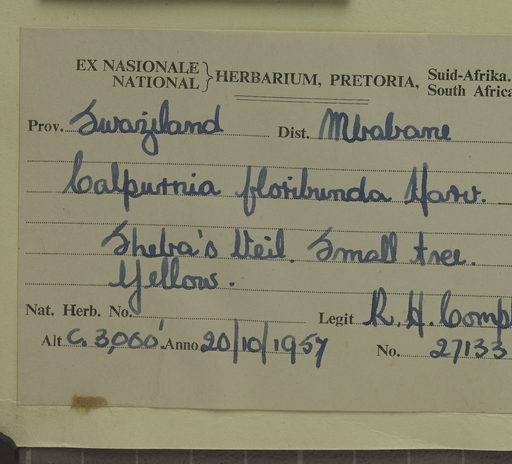 EX NASIONALE } HERBARIUM, PRETORIA, Suid-Afrika.
NATIONAL South Africa
Prov. Swaziland Dist. Mbabane
Calpurnia floribunda Harv.
Sheba's Veil. Small tree.
Yellow.
Nat. Herb. No. Legit R. H. Comp
Alt c. 3,000'. Anno 20/10/1957 No. 27133